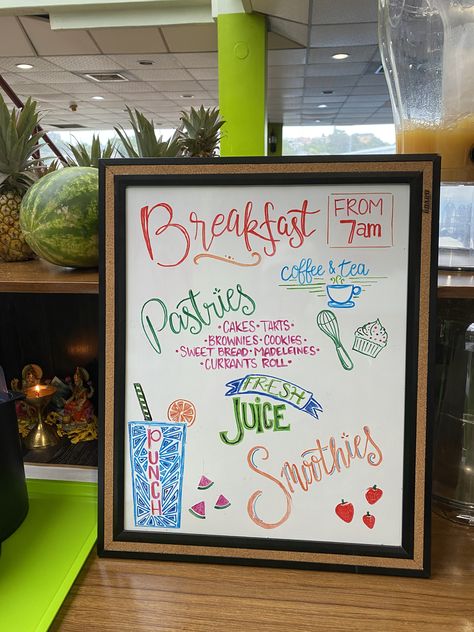 Breakfast
FROM
7am
coffee & tea
Pastries
• CAKES • TARTS
• BROWNIES • COOKIES
• SWEET BREAD • MADELEINES •
CURRANTS ROLL •
FRESH
Juice
PUNCH
Smoothies